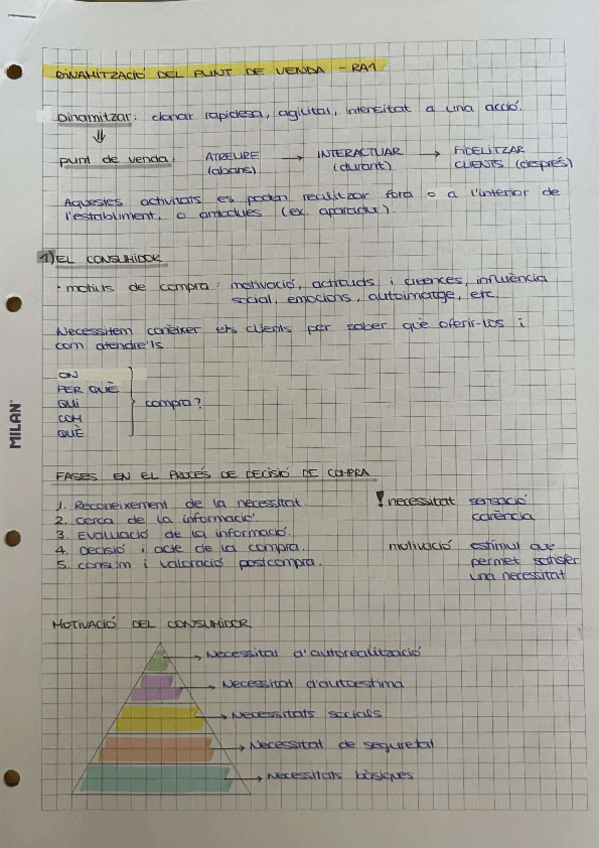 DINAMITZACIÓ DEL PUNT DE VENDA - RA1
Dinamitzar: donar rapidesa, agilitat, intensitat a una acció.
⇓
punt de venda: ATREURE → INTERACTUAR → FIDELITZAR
(abans) (durant) CLIENTS (després)
Aquestes activitats es poden realitzar fora o a l'interior de
l'establiment, o ambdues (ex. aparador).
1) EL CONSUMIDOR
· motius de compra: motivació, actituds i creences, influència
social, emocions, autoimatge, etc.
Necessitem conèixer els clients per saber què oferir-los i
com atendre'ls
ON
PER QUÈ
QUI } compra?
COM
QUÈ
FASES EN EL PROCÉS DE DECISIÓ DE COMPRA
1. Reconeixement de la necessitat.
2. cerca de la informació.
3. Evaluació de la informació.
4. Decisió i acte de la compra.
5. consum i valoració postcompra.
! necessitat sensació
carència
motivació estímul que
permet satisfer
una necessitat
MOTIVACIÓ DEL CONSUMIDOR
→ Necessitat d'autorealització
→ Necessitat d'autoestima
→ Necessitats socials
→ Necessitat de seguretat
→ Necessitats bàsiques
MILAN